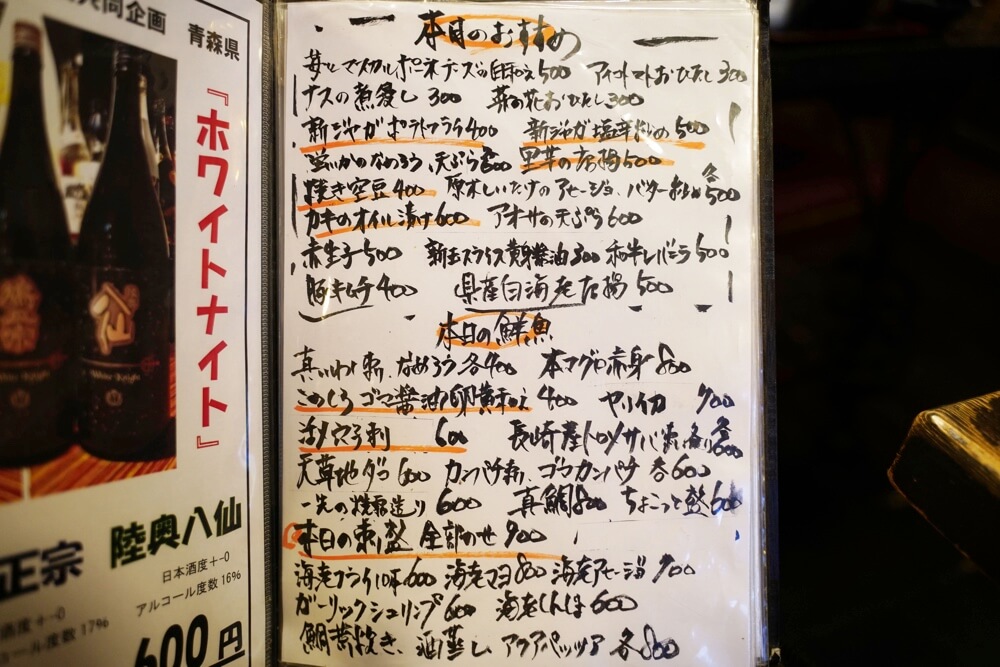 共同企画
青森県
『ホワイトナイト』
正宗
陸奥八仙
日本酒度+-0
アルコール度数16%
酒度+-0
コール度数17%
600円
本日のおすすめ
苺とマスカルポーネチーズの白和え500 アイコトマトおひたし300
ナスの煮浸し300 菜の花おひたし300
新ジャガポテトフライ400 新ジャガ塩辛炒め500
蛍いかのなめろう、天ぷら 里芋の唐揚500
焼き空豆400 原木しいたけのアヒージョ、バター炒め各500
カキのオイル漬け600 アオサの天ぷら600
赤生子500 新玉スライス黄身醤油300 和牛レバニラ500
豚キムチ400 県産白海老唐揚500
本日の鮮魚
真いわし刺、なめろう各400 本マグロ赤身800
このしろゴマ醤油/卵黄和え400 ヤリイカ700
活〆穴子刺600 長崎産トロメサバ
天草地ダコ600 カンパチ刺、ゴマカンパチ各600
焼霜造り600 真鯛800 ちょこっと盛600
本日の刺盛 全部のせ900
海老フライ 600 海老マヨ800 海老アヒージョ700
ガーリックシュリンプ600 海老しんじょ600
鯛荒炊き、酒蒸し アクアパッツァ各800